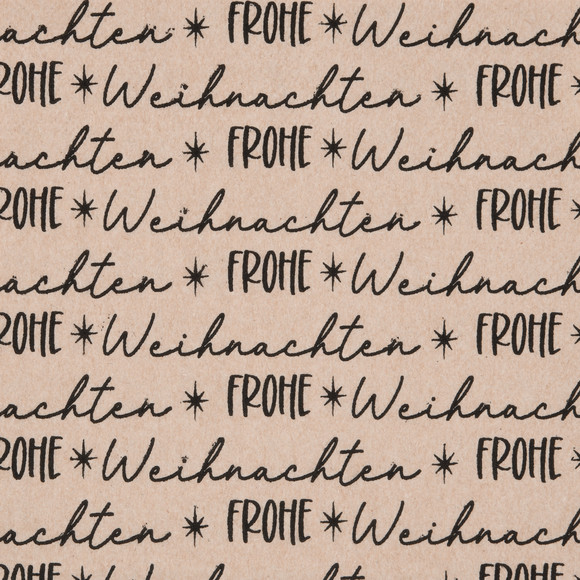 nachten * FROHE * Weihnach
ROHE * Weihnachten * FROHE *
achten * FROHE * Weihnach
ROHE * Weihnachten * FROHE *
achten * FROHE * Weihnach
ROHE * Weihnachten * FROHE *
achten * FROHE * Weihnach
ROHE * Weihnachten * FROHE *
achten * FROHE * Weihnach
ROHE * Weihnachten * FROHE